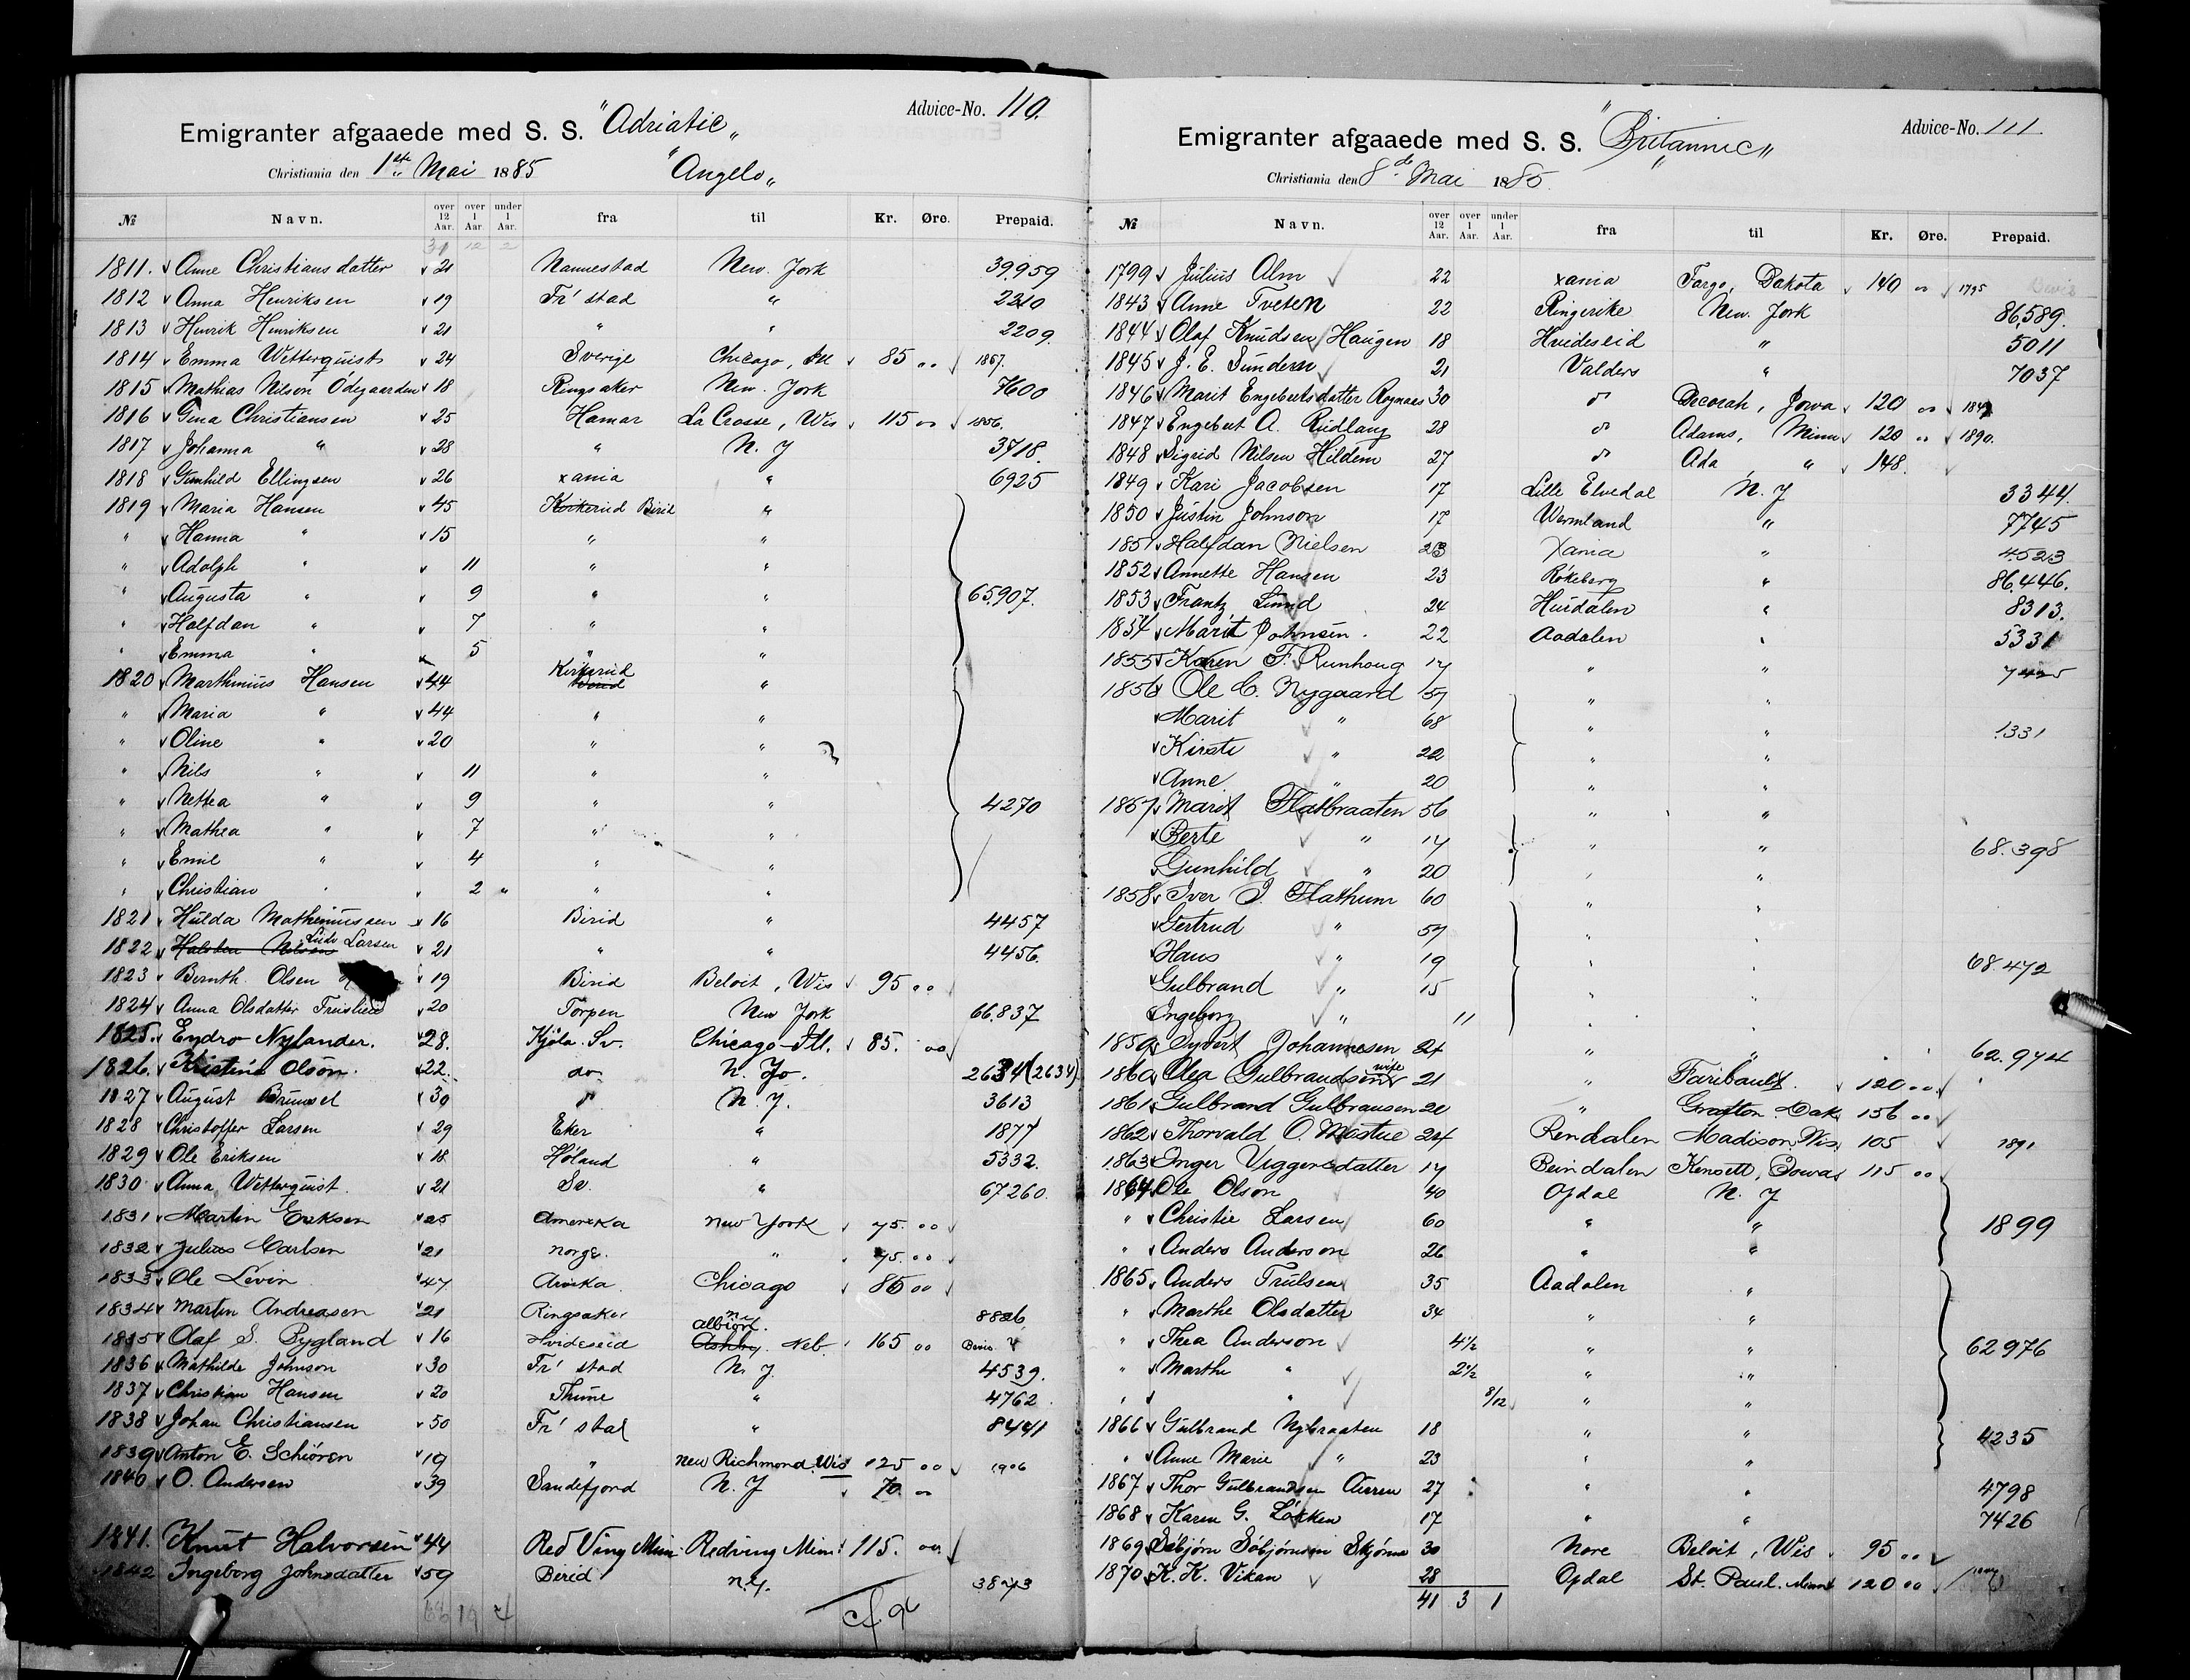 Advice-No. 110.
Emigranter afgaaede med S. S. "Adriatic"
Christiania den 1ste Mai 1885 "Angelo"
№ Navn. over 12 Aar. over 1 Aar. under 1 Aar. fra til Kr. Øre. Prepaid.
1811. Anne Christiansdatter 21 Nannestad New. York 39,959
1812 Anna Henriksen 19 Fr'stad " 2210
1813 Henrik Henriksen 21 " " 2209.
1814 Emma Wetterquist 24 Sverige Chicago, Ill 85 " 1867.
1815 Mathias Nilson Ødegaarden 18 Ringsaker New. York 7600
1816 Gina Christiansen 25 Hamar La Crosse, Wis 115 " 1856.
1817 Johanna " 28 " N. Y 3718.
1818 Gunhild Ellingsen 26 xania " 6925
1819 Maria Hansen 45 Birid "
" Hanna " 15 " "
" Adolph " 11 " "
" Augusta " 9 " " 65,907.
" Halfdan " 7 " "
" Emma " 5 " "
1820 Marthinius Hansen 44 "
" Maria " 44 " "
" Oline " 20 " "
" Nils " 11 " "
" Nettea " 9 " " 4270
" Mathea " 7 " "
" Emil " 4 " "
" Christian " 2 " " "
1821 Hulda Mathiniussen 16 Birid " 4457
1822 Larsen 21 " " 4456.
1823 Bernth. Olsen 19 Birid Beloit, Wis 95 "
1824 Anna Olsdatter 20 Torpen New York 66.837
1825. Eydro Nylander. 28. Kjöla. Sv. Chicago Ill. 85. 00
1826. Kristina Olson. 22. do N. Yo. 2634 (2634)
1827 August 30 " N. Y. 3613
1828 Christoffer Larsen 29 Eker " 1877
1829 Ole Eriksen 18 Høland " 5332.
1830 Anna Wetterquist. 21 Sv. " 67260.
1831 Martin Eriksen 25 Amerika New York 75. 00
1832 Julius Carlsen 21 Norge. " 75. 00
1833 Ole Levin 47 Arvika Chicago 85 00
1834 Martin Andreasen 21 Ringsaker 8826
1835 Olaf S. Bygland 16 Hvideseid Albion. Ashby. Neb. 165 00
1836 Mathilde Johnson 30 Fr'stad N. Y. 4539.
1837 Christian Hansen 20 Thime " 4762.
1838 Johan Christiansen 50 Fr'stad " 8441
1839 Anton E. Schiøren 19 " New Richmond. Wis 125 00 1906
1840 O. Andersen 39 Sandefjord N. Y 70 "
1841. Knut Halvorsen 44 Red Ving Min Redving Min 115. 00.
1842 Ingeborg Johnsdatter 59 Birid N.Y. 3873
Advice-No. 111.
Emigranter afgaaede med S. S. "Britannic"
Christiania den 8de Mai 1885.
№ Navn. over 12 Aar. over 1 Aar. under 1 Aar. fra til Kr. Øre. Prepaid.
1799 Julius Alm 22 xania Fargo, Dakota 140 " 1795
1843 Anne Tveten 22 Ringerike New. York 86,589.
1844 Olaf Knudsen Haugen 18 Hvideseid " 5011
1845 J. E. Sundem 21 Valders " 7037
1846 Marit Engebertsdatter Rognaes 30 do Decorah, Jowa 120 "
1847 Engebert A. Rudlang 28 do Adams, Minn 120 " 1890.
1848 Sigrid Nilsen Hildem 27 do Ada " 148.
1849 Kari Jacobsen 17 Lille Elvedal N. Y 3344.
1850 Justin Johnson 17 Wermland " 7745
1851 Halfdan Nielsen 23 Xania " 4523
1852 Annette Hansen 23 Rökeberg " 86,446.
1853 Frantz Lund 24 Hurdalen " 8313.
1854 Marit Johnsen. 22 Aadalen " 5331
1855 Karen F. Runhoug 17 " " 7425
1856 Ole C. Nygaard 57 " "
Marit " 68 " " 1331
Kirsti " 22 " "
Anne " 20 " "
1857 Marit Flatbraaten 56 " "
Berte " 17 " " 68.398
Gunhild " 20 " "
1858 Iver I. Flathum 60 " "
Gertrud " 57 " "
Hans " 19 " " 68.472
Gulbrand " 15 " "
Ingeborg " 11 " "
1859 Syvert Johannesen 24 " " 62.974
1860 Olea Gulbrandsen wife 21 " Faribault. 120 00
1861 Gulbrand Gulbransen 20 " Grafton. Dak 156 "
1862 Thorvald O. Mostue 24 Rendalen Madison Wis 105 1891
1863 Inger Viggensdatter 17 Reindalen Kensett, Iowa 115 00
1864 Ole Olson 40 Opdal N. Y
" Christie Larsen 60 " " 1899
" Anders Anderson 26 " "
1865 Anders Trulsen 35 Aadalen "
" Marthe Olsdatter 34 " "
" Thea Anderson 4½ " " 62976
" Marthe " 2½ " "
" " 8/12 " "
1866 Gulbrand Nybraaten 18 " " 4235
" Anne Marie " 23 " "
1867 Thor Gulbrandsen Aurren 27 " " 4798
1868 Karen G. Løkken 17 " " 7426
1869 Søbjørn Søbjørnsen Skjønne 30 Nore Beloit, Wis 95 "
1870 K. K. Vikan 28 Opdal St. Paul. Minn 120 00
41 3 1